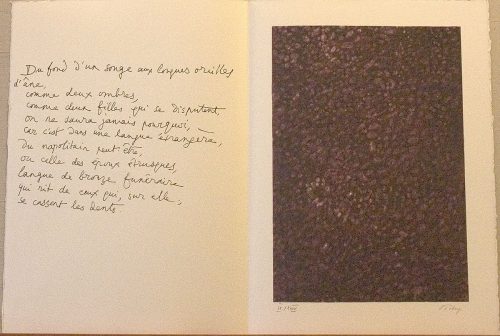 Du fond d'un songe aux longues oreilles
d'âne,
comme deux ombres,
comme deux filles qui se disputent,
on ne saura jamais pourquoi,
car c'est dans une langue étrangère,
du napolitain peut-être,
ou celle des époux étrusques,
langue de bronze funéraire
qui rit de ceux qui, sur elle,
se cassent les dents.